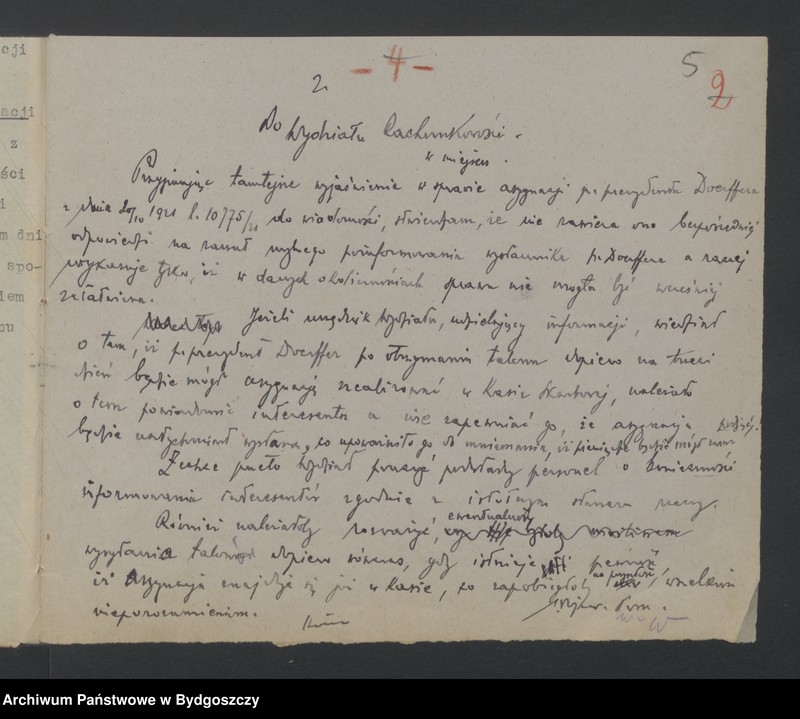 cji
acji
z
ści
i
m dni
spo-
iem
su
- 4 -
5
2
2.
Do Wydziału Rachunkowości
w miejscu.
Przyjmując tamtejsze wyjaśnienie w sprawie asygnacji p. prezydenta Doerffera
z dnia 1921 l. 10775/21 do wiadomości, stwierdzam, że nie zawiera ono bezpośredniej
odpowiedzi na zarzut mylnego poinformowania wysłannika p. Doerffera a raczej
wykazuje tylko, iż w danych okolicznościach sprawa nie mogła być wcześniej
załatwiona.
Jeżeli urzędnik Wydziału, udzielający informacji, wiedział
o tem, iż p. prezydent Doerffer po otrzymaniu talonu dopiero na trzeci
dzień będzie mógł asygnację zrealizować w Kasie Skarbowej, należało
o tem powiadomić interesenta a nie zapewniać go, że asygnacja
będzie natychmiast wysłana, co upoważniło go do mniemania, iż pieniądze będzie mógł
Zechce przeto Wydział pouczyć podwładny personel o konieczności
informowania interesentów zgodnie z istotnym stanem rzeczy.
Również należałoby rozważyć, ewentualność
wysyłania talonów dopiero wówczas, gdy istnieje pewność
iż asygnacja znajduje się już w kasie, co zapobiegłoby na przyszłość wszelkim
nieporozumieniom.
Pom.
Archiwum Państwowe w Bydgoszczy